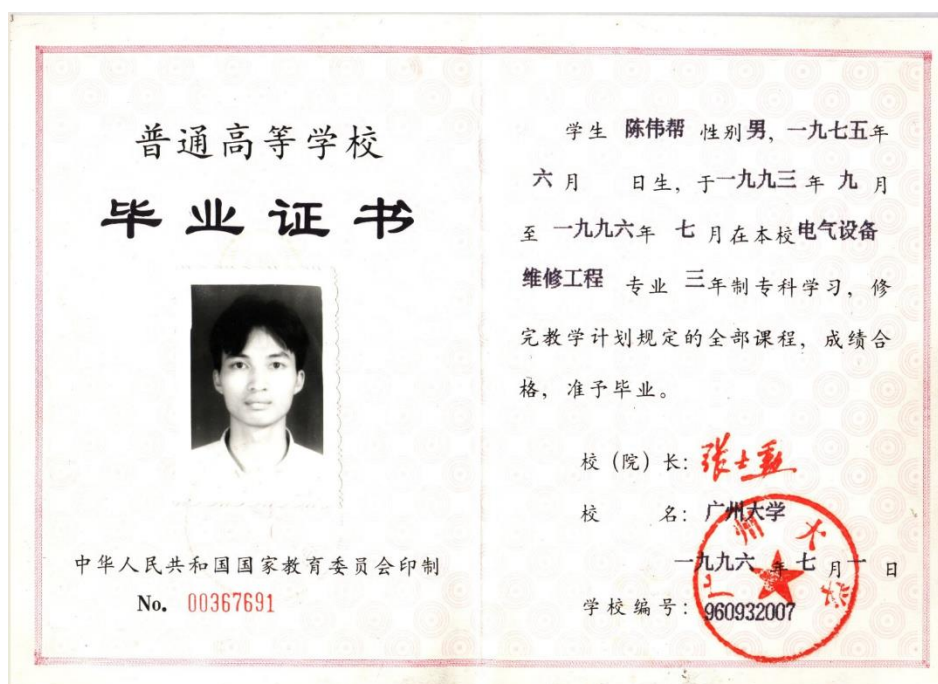 普通高等学校
毕业证书
中华人民共和国国家教育委员会印制
No. 00367691
学生 陈伟帮 性别男，一九七五年
六月 日生，于一九九三年九月
至一九九六年七月在本校电气设备
维修工程专业三年制专科学习，修
完教学计划规定的全部课程，成绩合
格，准予毕业。
校（院）长：张士勤
校 名：广州大学
一九九六年七月一日
学校编号：960932007
广州大学